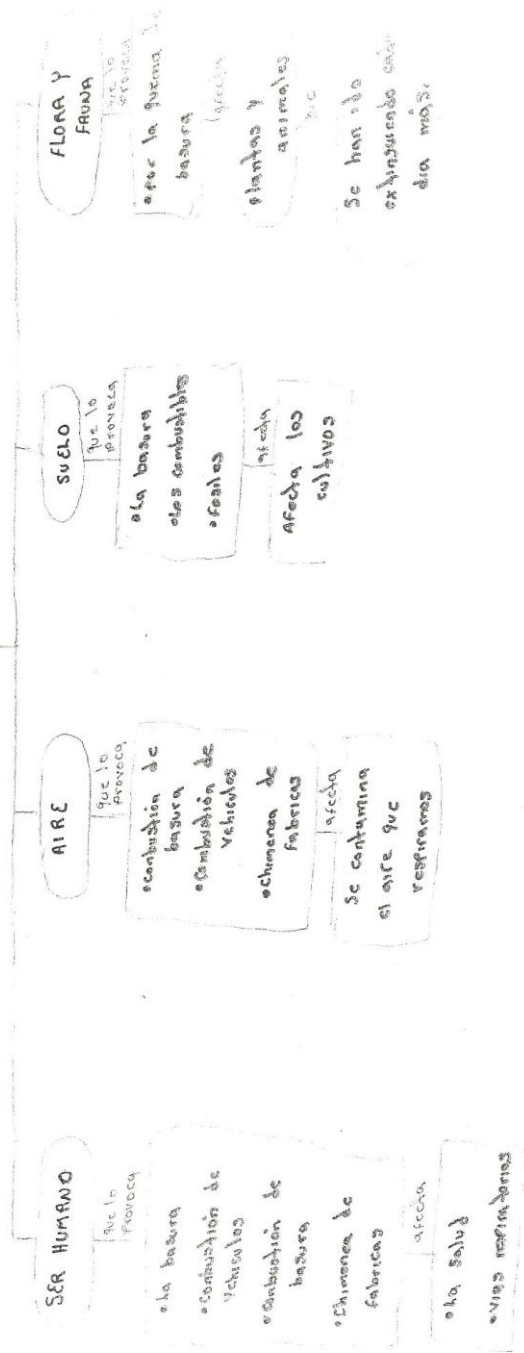 SER HUMANO
que lo
provoca
• La basura
• Combustión de
vehiculos
• Combustión de
basura
• Chimenea de
fabricas
afecta
• La salud
• Vias respiratorias
AIRE
que lo
provoca
• Combustión de
basura
• Combustión de
vehiculos
• Chimenea de
fabricas
afecta
Se contamina
el aire que
respiramos
SUELO
que lo
provoca
• La basura
• Los combustibles
• Fosiles
afecta
Afecta los
cultivos
FLORA Y
FAUNA
que lo
provoca
• Por la quema de
basura
afecta
Plantas y
animales
Se han ido
extinguiendo cada
dia más.